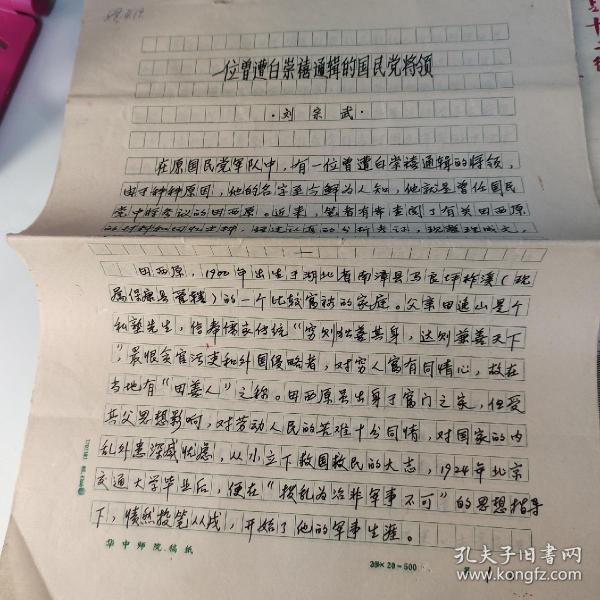 一位曾遭白崇禧通缉的国民党将领
·刘宗武·
在原国民党军队中，有一位曾遭白崇禧通缉的将领，
由于种种原因，他的名字至今鲜为人知，他就是曾任国民
党中将参议的田西原。近来，笔者有幸查阅了有关田西原
的材料和回忆史料，
一
田西原，1900年出生于湖北省南漳县马良坪柞溪（现
属保康县管辖）的一个比较富裕的家庭。父亲田远山是个
私塾先生，信奉儒家传统“穷则独善其身，达则兼善天下
”，最恨贪官污吏和外国侵略者，对穷人富有同情心，故在
当地有“田善人”之称。田西原虽出身于富门之家，但受
其父思想影响，对劳动人民的苦难十分同情，对国家的内
乱外患深感忧虑，从小立下救国救民的大志，1924年北京
交通大学毕业后，便在“拨乱为治非军事不可”的思想指导
下，愤然投笔从戎，开始了他的军事生涯。
华中师院稿纸
20×20=500
孔夫子旧书网
www.kongfz.com